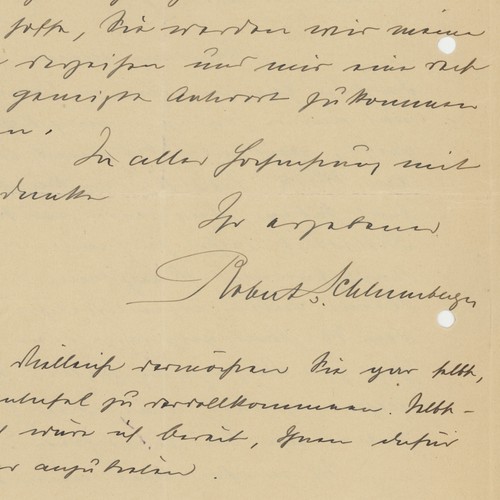 hoffe, Sie werden mir meine
verzeihen und mir eine recht
geneigte Antwort zukommen
In aller Hochachtung mit
Ihr ergebener
Robert v. Schlumberger
Vielleicht vermöchten Sie gar selbst,
zu vervollkommnen. Selbst-
wäre ich bereit, Ihnen dafür
anzubieten.